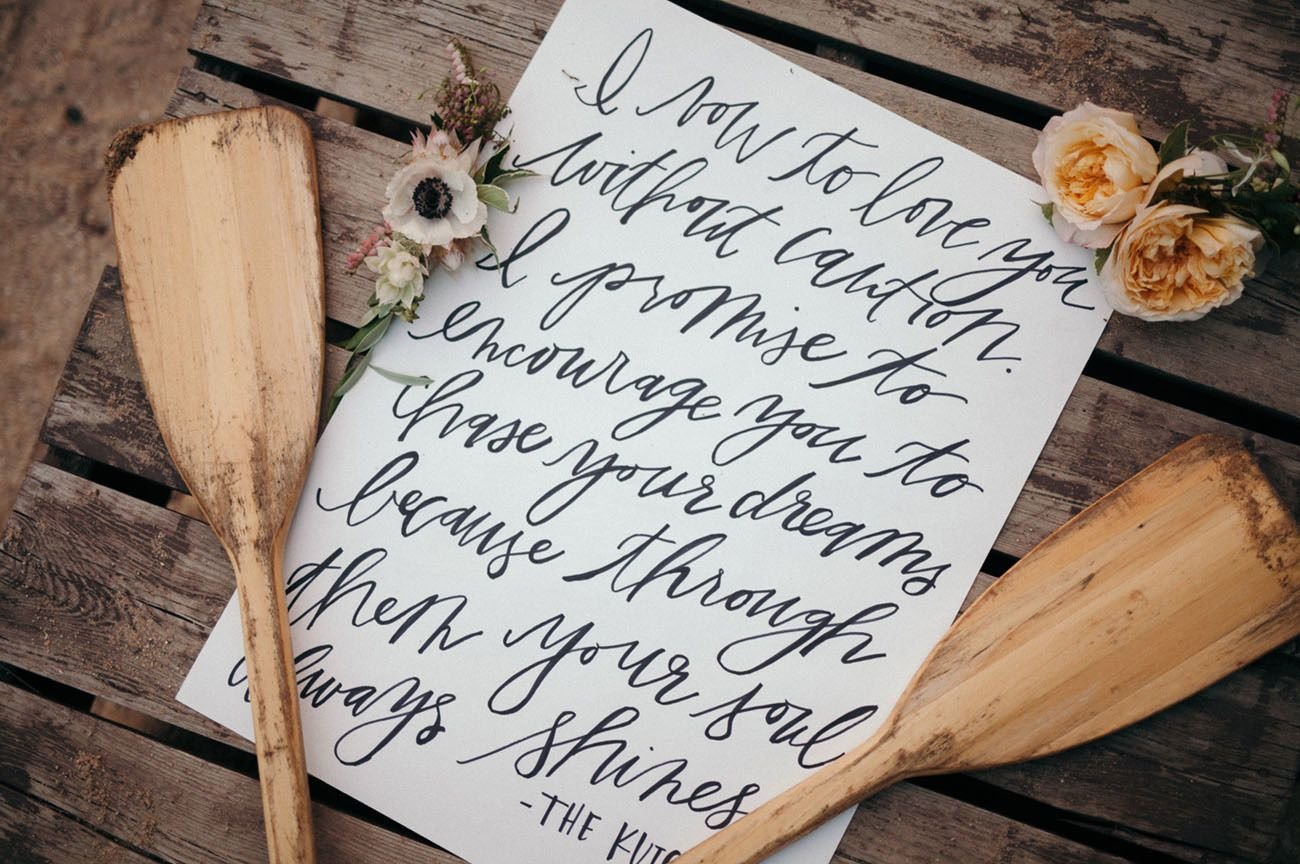 I vow to love you
without caution.
I promise to
encourage you to
chase your dreams
because through
them your soul
always shines
-THE